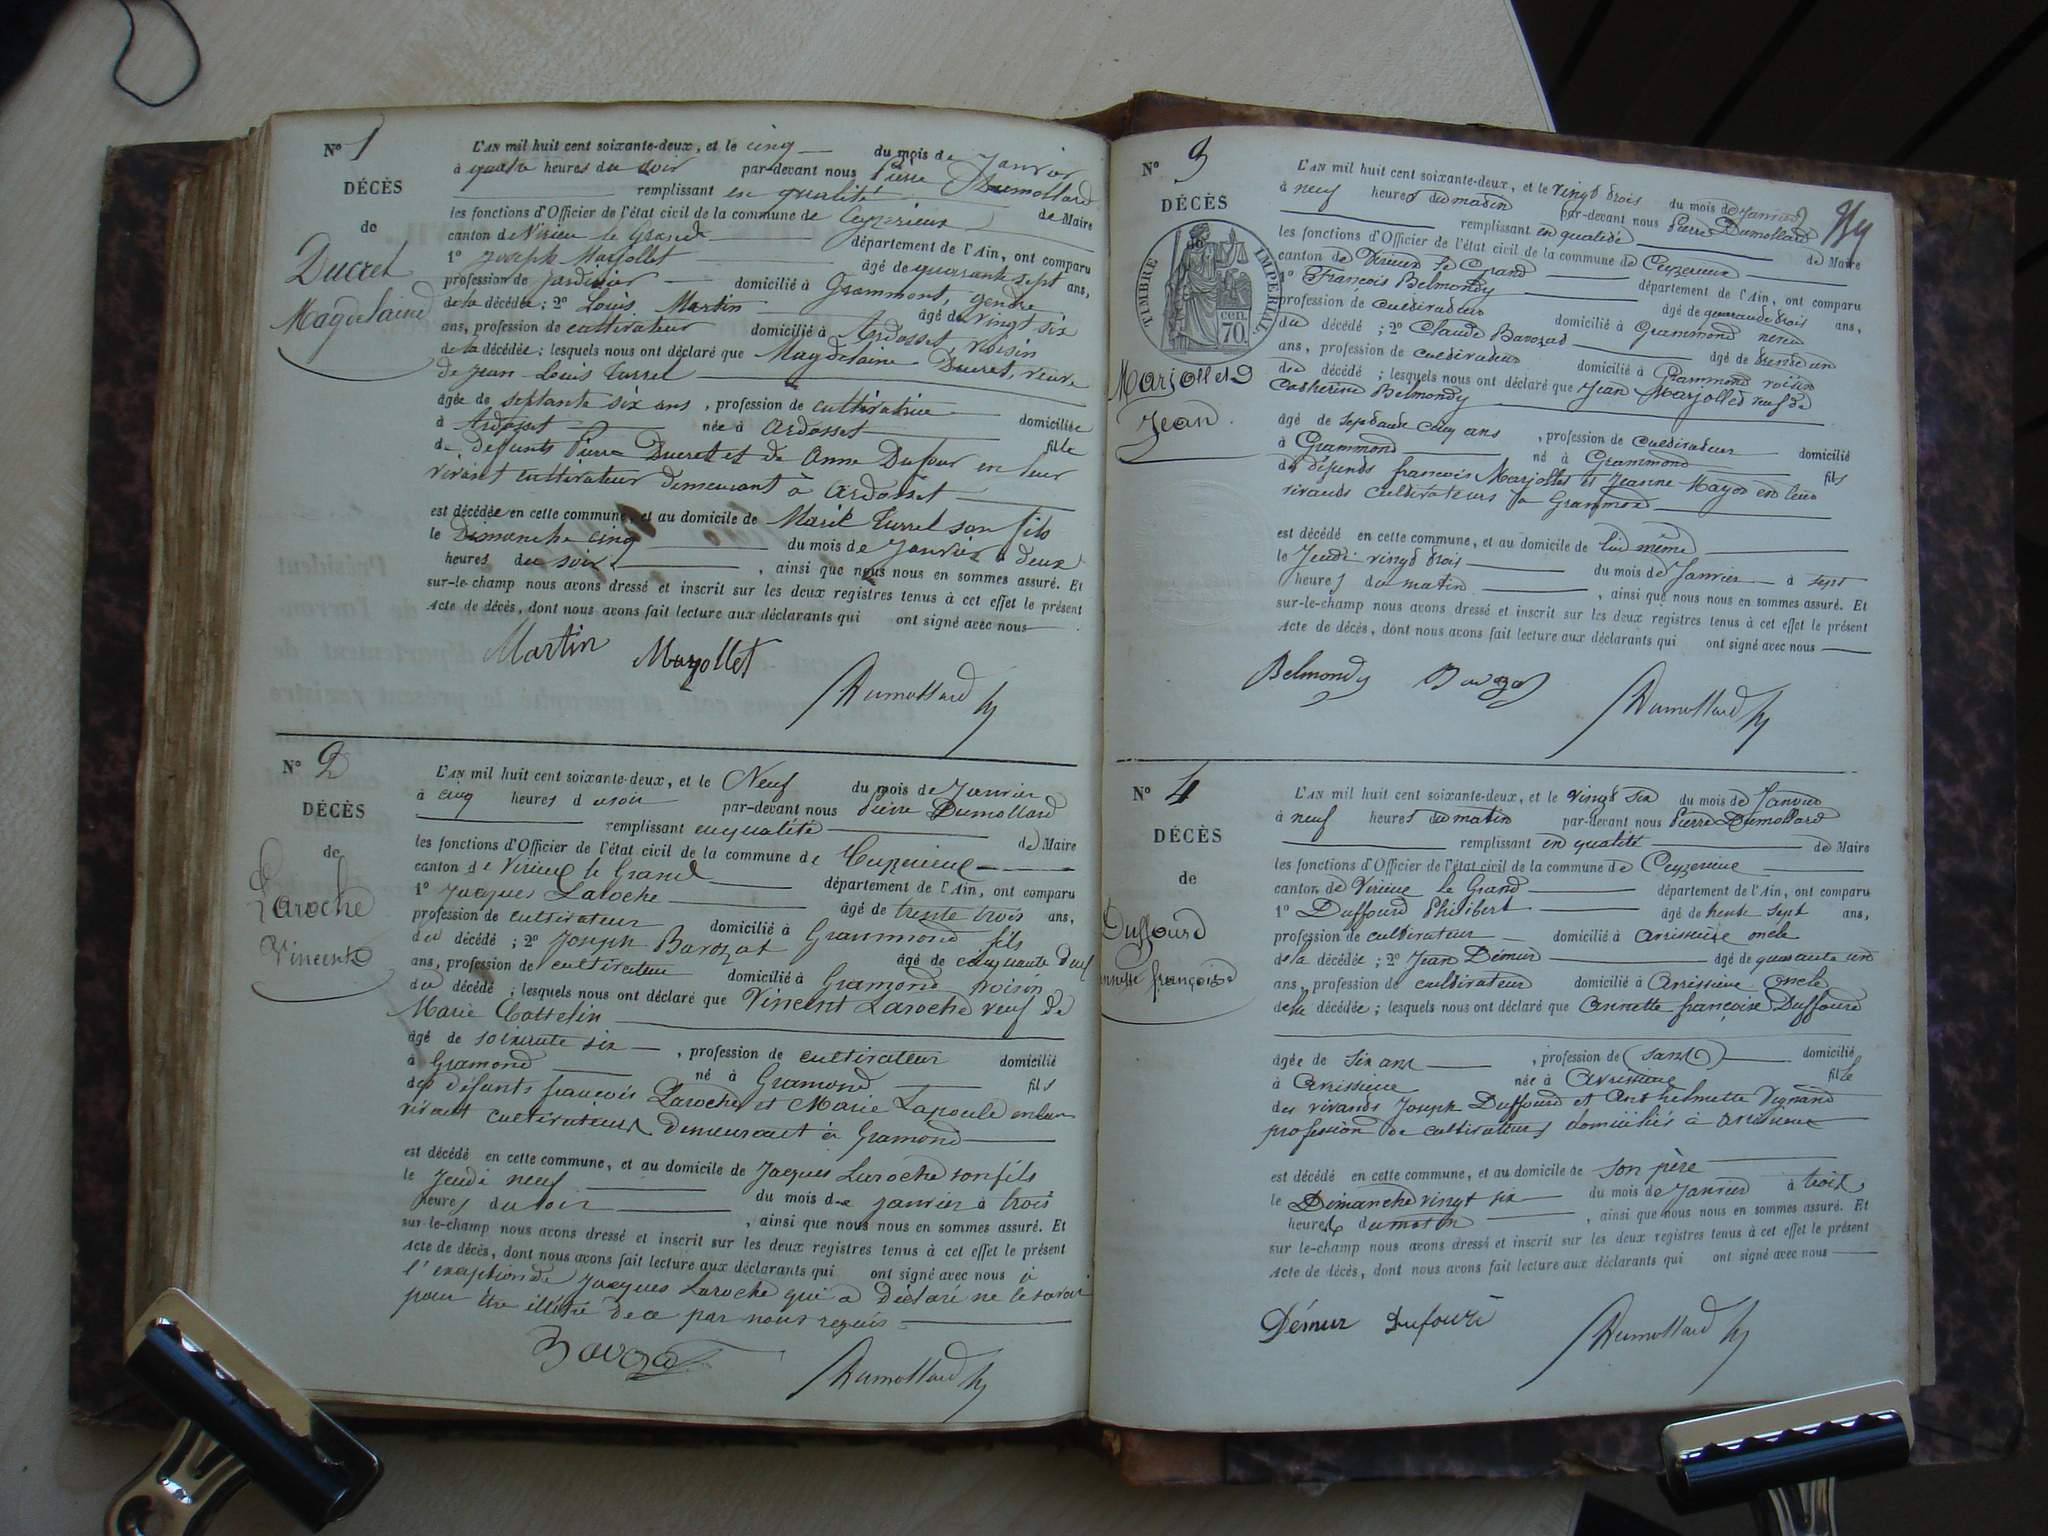 N° 1
DÉCÈS
de
Ducret
Magdelaine
L'AN mil huit cent soixante-deux, et le cinq du mois de Janvier
à quatre heures du soir par-devant nous Pierre Dumollard
remplissant en qualité de Maire
les fonctions d'Officier de l'état civil de la commune de Ceyzerieux
canton de Virieu le Grand département de l'Ain, ont comparu
1° Joseph Marjollet âgé de quarante sept ans,
profession de Jardinier domicilié à Grammont, gendre
de la décédée; 2° Louis Martin âgé de vingt six
ans, profession de cultivateur domicilié à Ardosset voisin
de la décédée; lesquels nous ont déclaré que Magdelaine Ducret, veuve
de Jean Louis Turrel
âgée de septante six ans, profession de cultivatrice domiciliée
à Ardosset née à Ardosset fille
de défunts Pierre Ducret et de Anne Dufour en leur
vivant cultivateur demeurant à Ardosset
est décédée en cette commune, et au domicile de Turrel son fils
le Dimanche cinq du mois de Janvier à deux
heures du soir, ainsi que nous nous en sommes assuré. Et
sur-le-champ nous avons dressé et inscrit sur les deux registres tenus à cet effet le présent
Acte de décès, dont nous avons fait lecture aux déclarants qui ont signé avec nous
Martin Marjollet
Dumollard
N° 2
DÉCÈS
de
Laroche
Vincent
L'AN mil huit cent soixante-deux, et le Neuf du mois de Janvier
à cinq heures du soir par-devant nous Pierre Dumollard
remplissant en qualité de Maire
les fonctions d'Officier de l'état civil de la commune de Ceyzerieux
canton de Virieux le Grand département de l'Ain, ont comparu
1° Jacques Laroche âgé de trente trois ans,
profession de cultivateur domicilié à Grammond fils
du décédé; 2° Joseph Barozat âgé de cinquante deux
ans, profession de cultivateur domicilié à Gramond voisin
du décédé; lesquels nous ont déclaré que Vincent Laroche veuf de
Marie Cottelin
âgé de soixante six, profession de cultivateur domicilié
à Gramond né à Gramond fils
des défunts françois Laroche et Marie Lapoule en leur
vivant cultivateurs demeurant à Gramond
est décédé en cette commune, et au domicile de Jacques Laroche son fils
le Jeudi neuf du mois de Janvier à trois
heures du soir, ainsi que nous nous en sommes assuré. Et
sur-le-champ nous avons dressé et inscrit sur les deux registres tenus à cet effet le présent
Acte de décès, dont nous avons fait lecture aux déclarants qui ont signé avec nous à
l'exeption de Jacques Laroche qui a Déclaré ne le savoir
pour être illétré de ce par nous requis
Barozat
Dumollard
N° 3
DÉCÈS
de
TIMBRE IMPÉRIAL
cen. 70.
Marjolled
Jean
L'AN mil huit cent soixante-deux, et le vingt trois du mois de Janvier
à neuf heures du matin par-devant nous Pierre Dumollard
remplissant en qualité de Maire
les fonctions d'Officier de l'état civil de la commune de Ceyzerieux
canton de Virieux le Grand département de l'Ain, ont comparu
1° François Belmondy âgé de quarante trois ans,
profession de cultivateur domicilié à Grammond neveu
du décédé; 2° Claude Barozat âgé de trente un
ans, profession de cultivateur domicilié à Grammond voisin
du décédé; lesquels nous ont déclaré que Jean Marjolled veuf de
Catherine Belmondy
âgé de septante cinq ans, profession de cultivateur domicilié
à Grammond né à Grammond fils
de défunts françois Marjollet et Jeanne en leur
vivants cultivateurs à Grammond
est décédé en cette commune, et au domicile de lui même
le Jeudi vingt trois du mois de Janvier à sept
heures du matin, ainsi que nous nous en sommes assuré. Et
sur-le-champ nous avons dressé et inscrit sur les deux registres tenus à cet effet le présent
Acte de décès, dont nous avons fait lecture aux déclarants qui ont signé avec nous
Belmondy Barozat
Dumollard
N° 4
DÉCÈS
de
Duffourd
annette françoise
L'AN mil huit cent soixante-deux, et le vingt six du mois de Janvier
à neuf heures du matin par-devant nous Pierre Dumollard
remplissant en qualité de Maire
les fonctions d'Officier de l'état civil de la commune de Ceyzerieux
canton de Virieux le Grand département de l'Ain, ont comparu
1° Duffourd Philibert âgé de trente sept ans,
profession de cultivateur domicilié à Avrissieux oncle
de la décédée; 2° Jean Démur âgé de quarante un
ans, profession de cultivateur domicilié à Avrissieux Oncle
de la décédée; lesquels nous ont déclaré que Annette françoise Duffourd
âgée de six ans, profession de (sans) domicilié
à Avrissieux née à Avrissieux fille
des vivands Joseph Duffourd et Anthelmette Vignand
profession de cultivateurs domiciliés à Avrissieux
est décédé en cette commune, et au domicile de son père
le Dimanche vingt six du mois de Janvier à trois
heures du matin, ainsi que nous nous en sommes assuré. Et
sur le-champ nous avons dressé et inscrit sur les deux registres tenus à cet effet le présent
Acte de décès, dont nous avons fait lecture aux déclarants qui ont signé avec nous
Démur Dufour
Dumollard